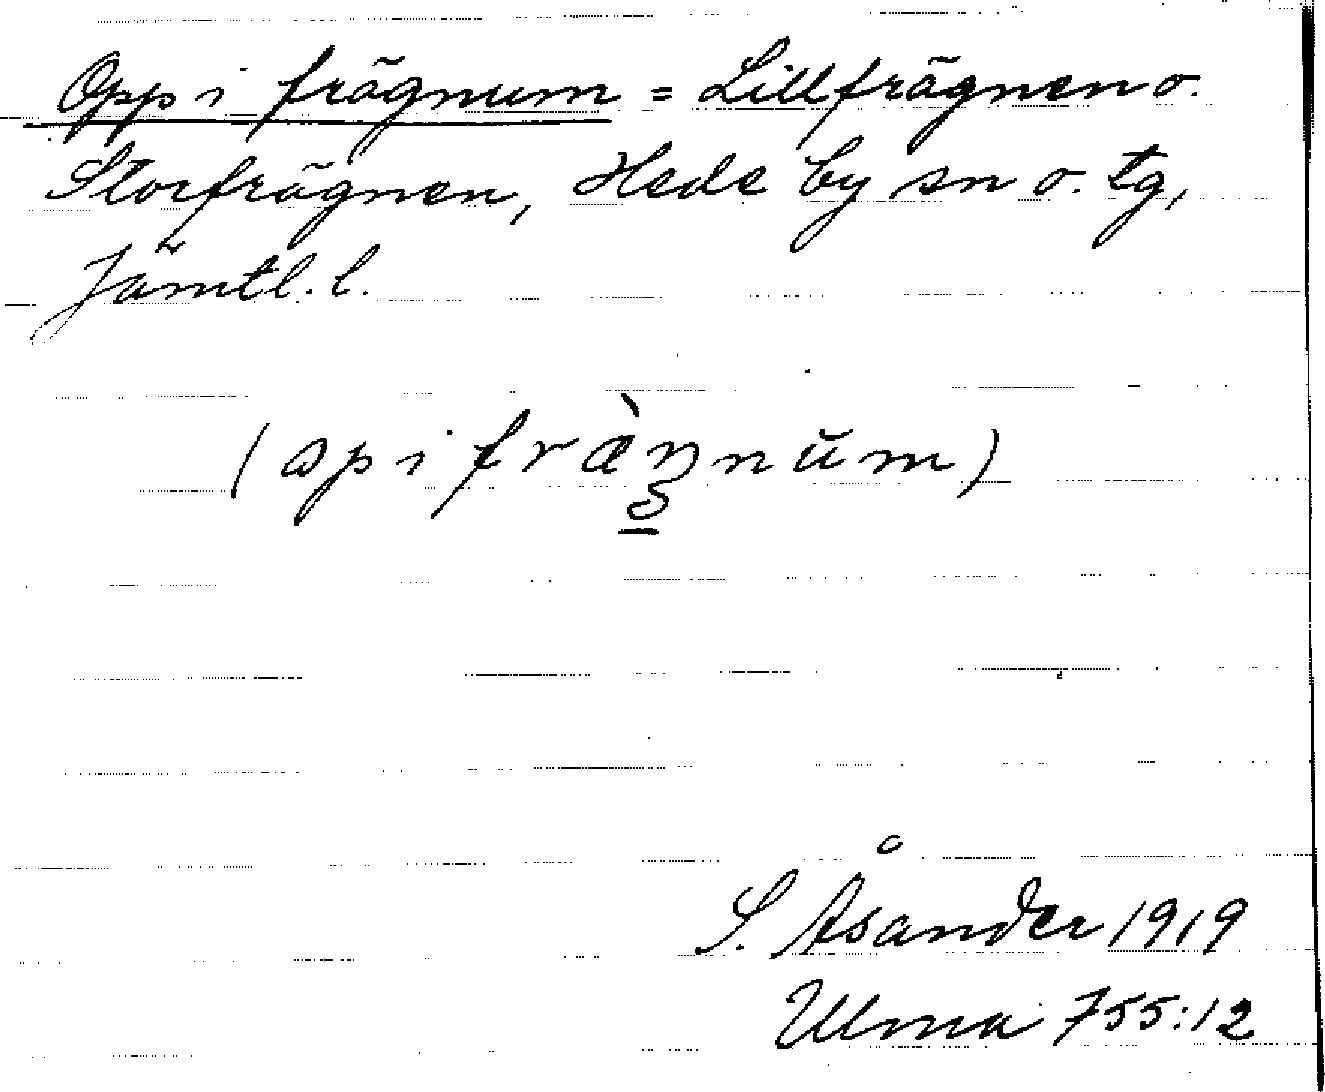 Opp i frägnum = Lillfrägnen o.
Storfrägnen, Hede by sn o. tg,
Jämtl. l.
S. Åsander 1919
Ulma 755:12